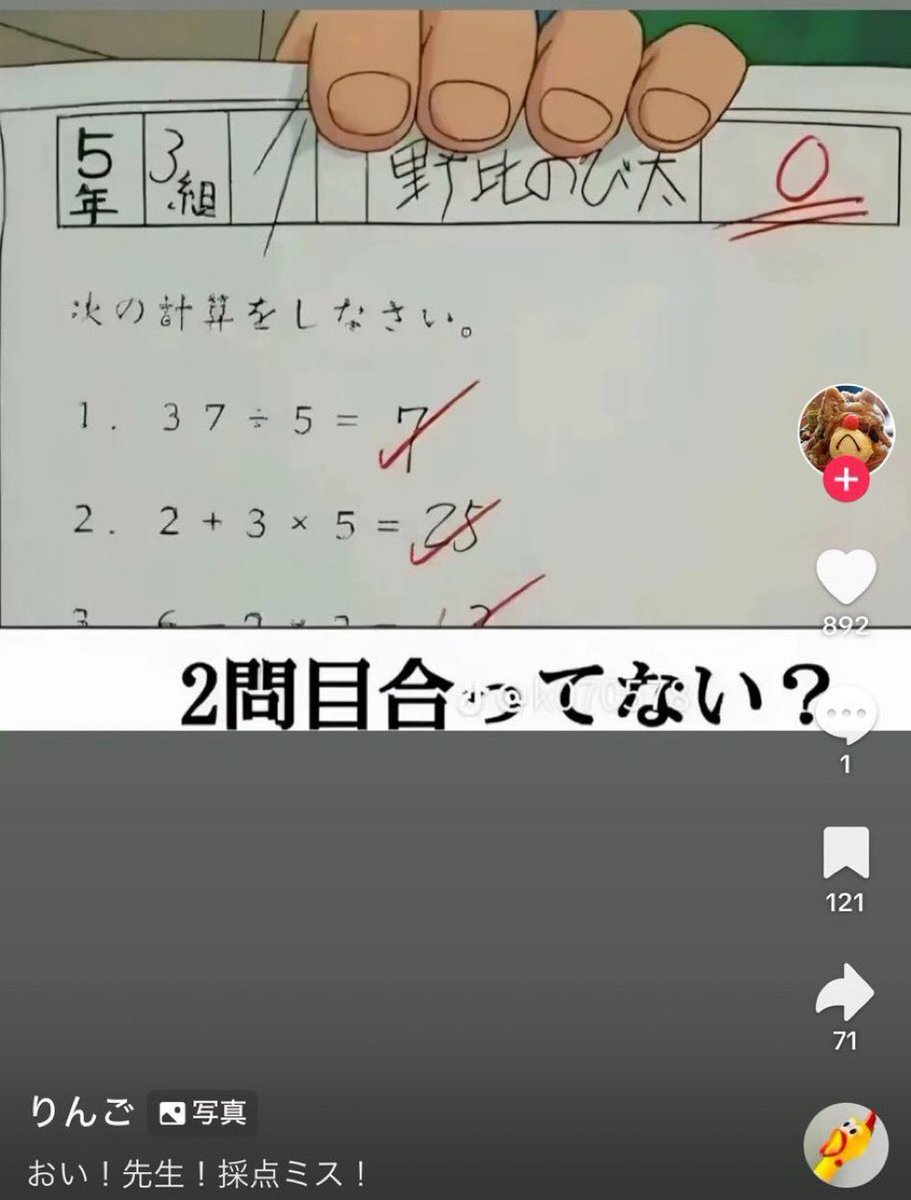 5年 3組 野比のび太 0
次の計算をしなさい。
1. 37÷5= 7
2. 2+3×5= 25
2問目合ってない？
892
1
121
71
りんご 写真
おい！先生！採点ミス！